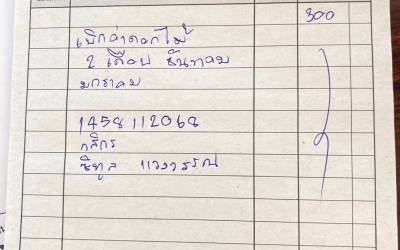 300
เบิกค่าดอกไม้
2 เดือน ธันวาคม
มกราคม
1458112068
กสิกร